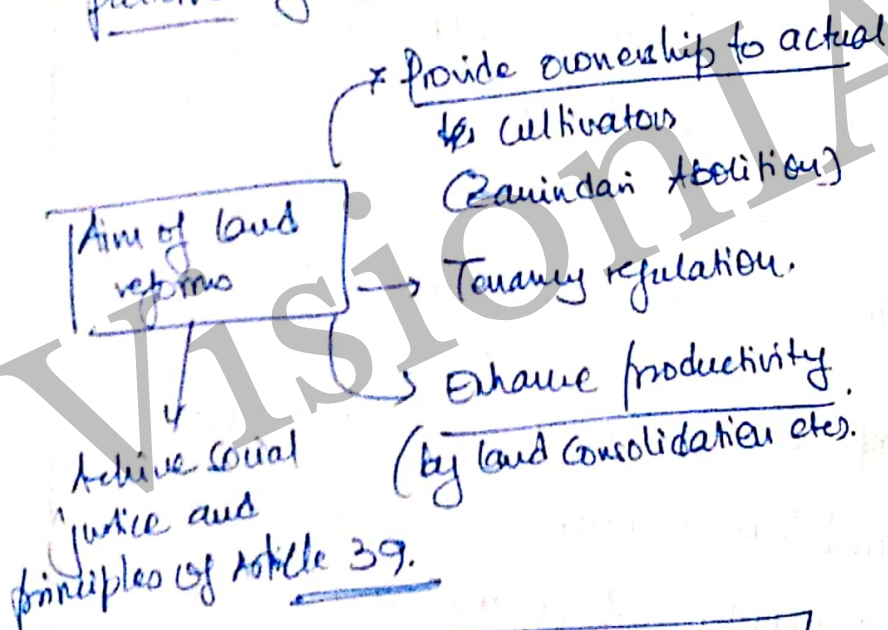 * Provide ownership to actual
cultivators
(Zamindari Abolition)
Aim of land
reforms
→ Tenancy regulation.
Enhance productivity.
(by land consolidation etc).
Achive social
justice and
principles of Article 39.
VisionIA